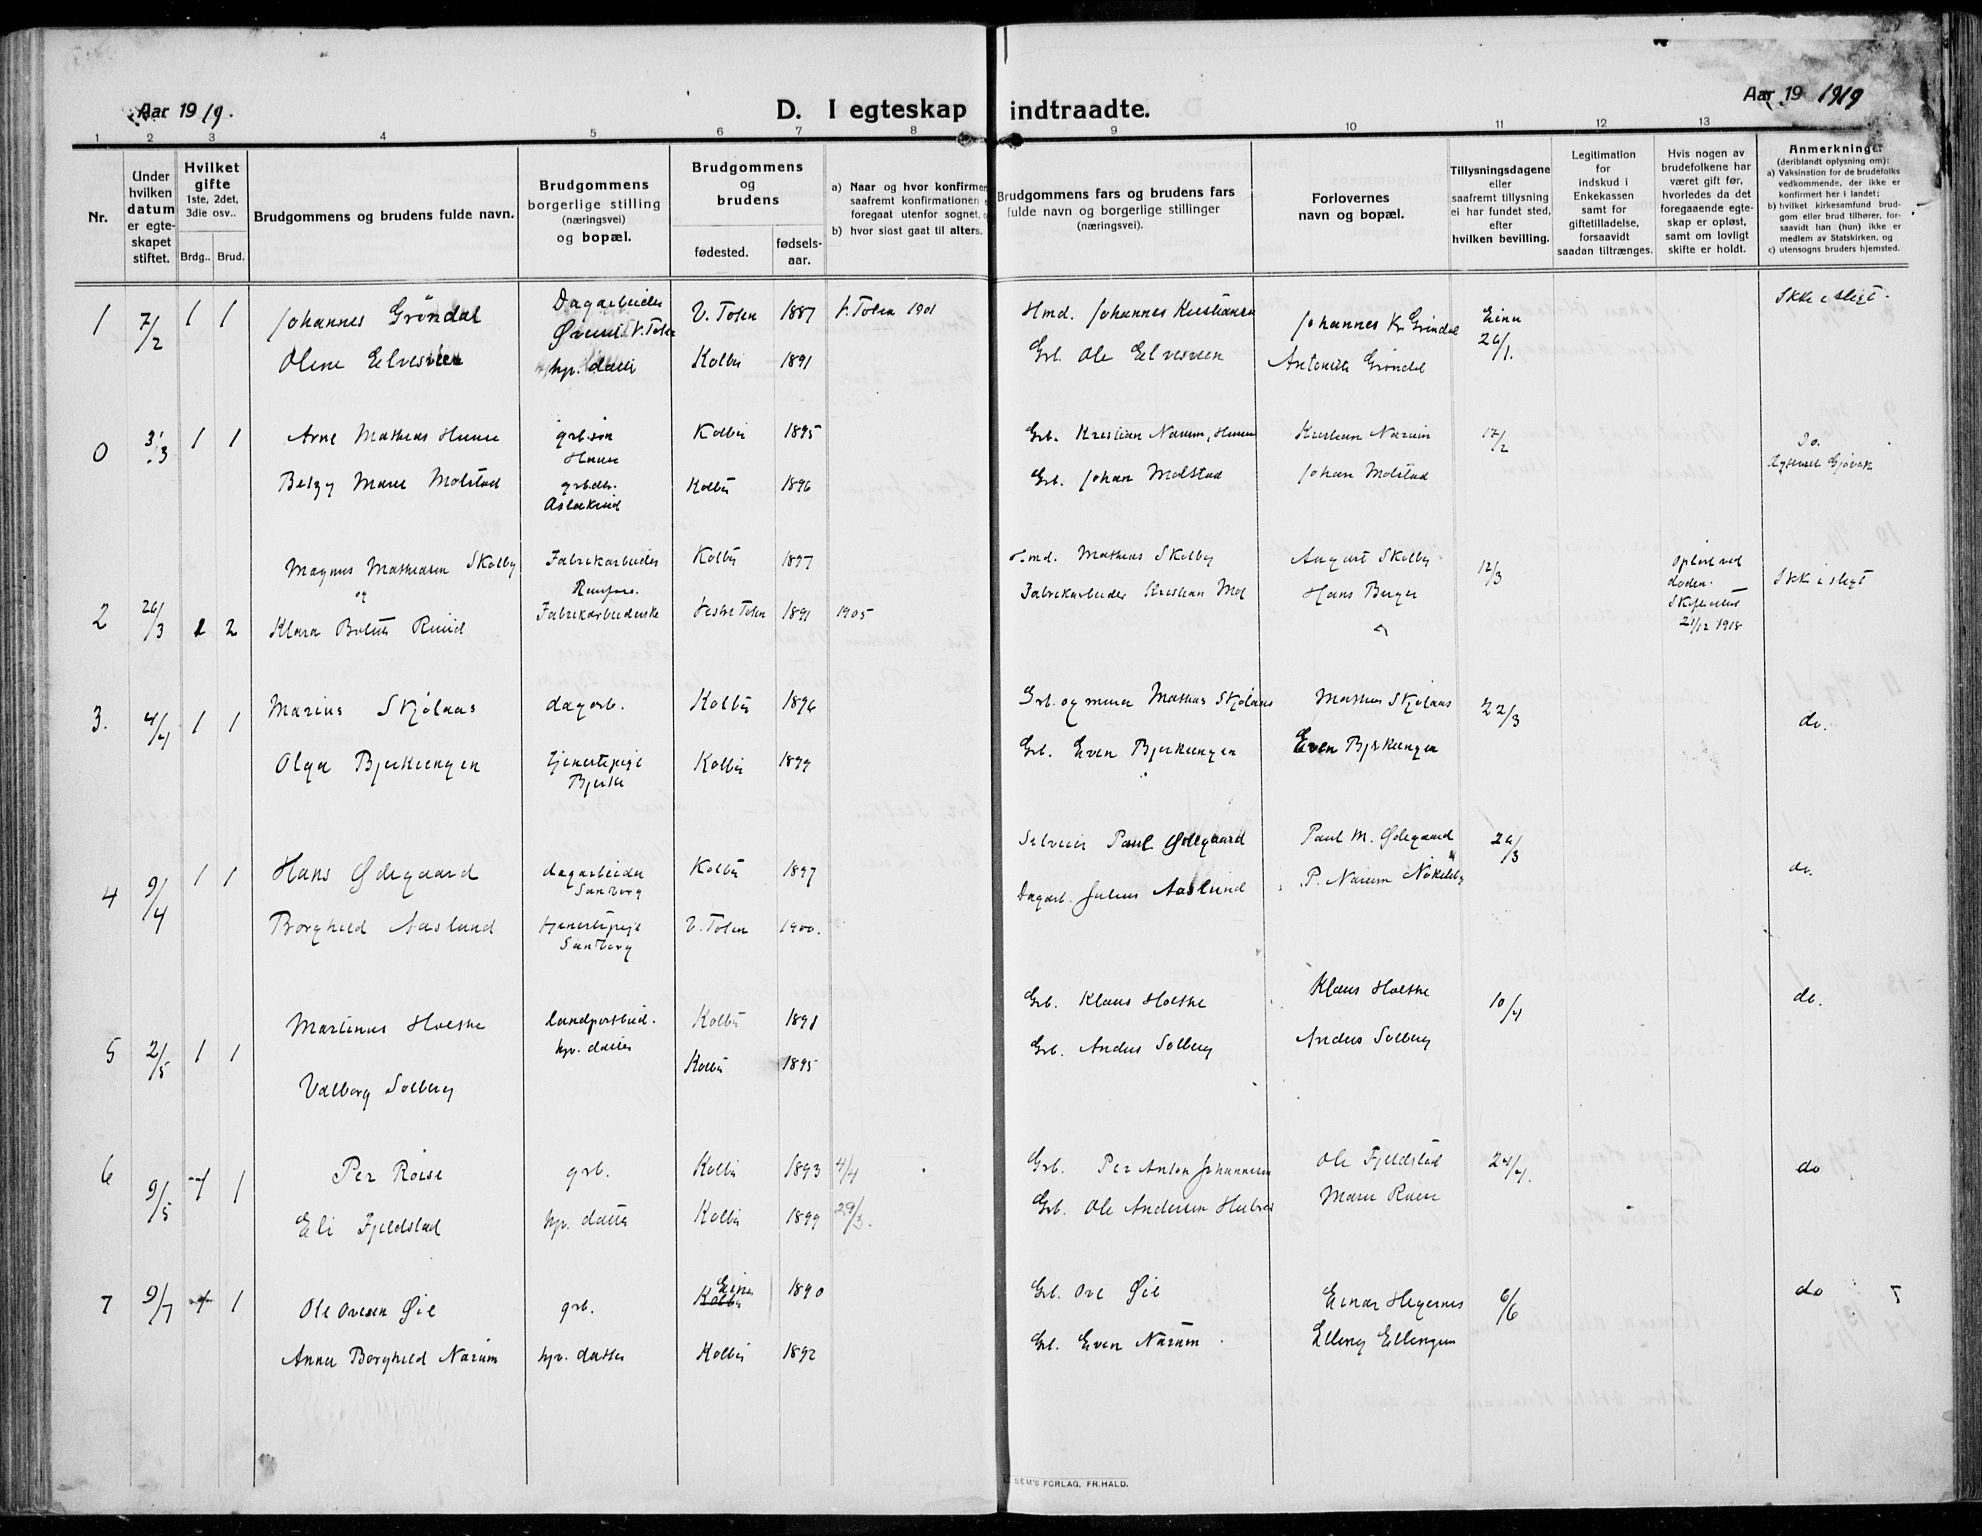 Aar 1919.
D. I egteskap indtraadte.
Aar 19 1919
1 2 3 4 5 6 7 8 9 10 11 12 13
Nr.
Under hvilken datum er egteskapet stiftet.
Hvilket gifte 1ste, 2det, 3die osv..
Brdg.. Brud.
Brudgommens og brudens fulde navn.
Brudgommens borgerlige stilling (næringsvei) og bopæl.
Brudgommens og brudens
fødested.
fødselsaar.
a) Naar og hvor konfirmer
saafremt konfirmationen e
foregaat utenfor sognet, o
b) hvor sidst gaat til alters.
Brudgommens fars og brudens fars
fulde navn og borgerlige stillinger
(næringsvei).
Forlovernes
navn og bopæl.
Tillysningsdagene
eller
saafremt tillysning
ei har fundet sted,
efter
hvilken bevilling.
Legitimation
for
indskud i
Enkekassen
samt for
giftetilladelse,
forsaavidt
saadan tiltrænges.
Hvis nogen av
brudefolkene har
været gift før,
hvorledes da det
foregaaende egte-
skap er opløst,
samt om lovligt
skifte er holdt.
Anmerkninger
(deriblandt oplysning om):
a) Vaksination for de brudefolks
vedkommende, der ikke er
konfirmert her i landet;
b) hvilket kirkesamfund brud-
gom eller brud tilhører, for-
saavidt han (hun) ikke er
medlem av Statskirken, og
c) utensogns bruders hjemsted.
1 7/2 1 1 Johannes Grøndal Dagarbeider V. Toten 1887 V. Toten 1901 Hmd. Johannes Kristiansen Johannes Kr. Grøndal Eina 26/1. Ikke i slegt.
Olene Elvesveen hjv. datter Kolbu 1891 Grb. Ole Elvesveen Antonette Grøndal
0 3/3 1 1 Arne Mathias Hunne grb.søn Hunne Kolbu 1895 Grb. Kristian Narum, Hunne Kristian Narum 17/2 Do.
Betzy Marie Molstad grb.dtr. Aslaksrud Kolbu 1896 Grb. Johan Molstad Johan Molstad Gjøvik
Magnus Mathiasen Skolby Fabrikarbeider Kolbu 1897 Hmd. Mathias Skolby August Skolby 12/3 opløst ved døden. Ikke i slegt
og
2 26/3 1 2 Klara Ruud Fabrikarbeiderske Vestre Toten 1891 1905 Fabrikarbeider Kristian Hans Berger 21/12 1918
3. 4/4 1 1 Marius Skjølaas dagarb. Kolbu 1896 Grb. og murer Mathias Skjølaas Mathias Skjølaas 22/3 do.
Olga Bjerkeengen tjenestepige Bjerke Kolbu 1899 Grb. Even Bjerkeengen Even Bjerkeengen
4 9/4 1 1 Hans Ødegaard dagarbeider Sandborg Kolbu 1897 Selveier Paul Ødegaard Paul M. Ødegaard 26/3 do.
Borghild Aaslund tjenestepige Sandborg V. Toten 1900. Dagarb. Julius Aaslund P. Narum Nøkleby
5 2/5 1 1 Martinus Holthe landpostbud. Kolbu 1891 Grb. Klaus Holthe Klaus Holthe 10/4 do.
Valborg Solberg hjv. datter Kolbu 1895 Grb. Anders Solberg Anders Solberg
6 9/5 1 1 Per Roise grb. Kolbu 1893 4/4 Grb. Per Anton Johannesen Ole Fjeldstad 24/4. do
Eli Fjeldstad hjv. datter Kolbu 1899 29/3. Grb. Ole Andersen
7 9/7 1 1 Ole Ovesen Øil grb. Eina Kolbu 1890 Grb. Ove Øil Einar Hegernes 6/6 do
Anna Borghild Narum hjv. datter Kolbu 1892 Grb. Even Narum Elling Ellingsen
SEM'S FORLAG, FR. HALD.